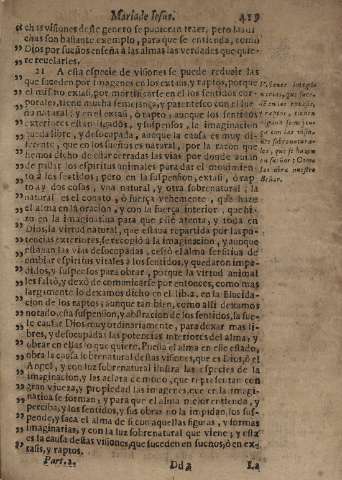 Maria de Iesus. 419
chas visiones deste genero se pudieran traer, pero las di
chas son bastante exemplo, para que se entienda, como
Dios por sueños enseña à las almas las verdades que quie-
re revelarles.
21 A esta especie de visiones se puede reduzir las
que suceden por imagenes en los extasis, y raptos, porque
el mismo extasis, por mortificarse en el los sentidos cor
porales, tiene mucha semejança, y parentesco con el sue
no natural; y en el extasi, ò rapto, aunque los sentidos
exteriores estan ligados, y suspensos, la imaginacion
queda libre, y desocupada, aunque la causa es muy di-
ferente, que en los sueños es natural, por la razon que
hemos dicho de estar cerradas las vias por donde auian
de passar los espiritus animales para dar el mouimien
to à los sentidos; pero en la suspension, extasi, ò rap-
to ay dos cosas, vna natural, y otra sobrenatural; la
natural es el conato, ò fuerça vehemente, que haze
el alma en la oracion, y con la fuerça interior, que hi-
zo en la imaginatiua para que esté atenta, y toda en
Dios, la virtud natural, que estaua repartida por las po-
tencias exteriores, se recogiò à la imaginacion, y aunque
estauan las vias desocupadas, cessò el alma sensitiua de
embiar espiritus vitales à los sentidos, y quedaron impe-
didos, y suspensos para obrar, porque la virtud animal
les faltò, y dexò de comunicarse por entonces, como mas
largamente lo dexamos dicho en el lib.2. en la Elucida-
cion de los raptos; aunque tan bien, como alli dexamos
notado, esta suspension, y abstracion de los sentidos, la sue-
le causar Dios muy ordinariamente, para dexar mas li-
bres, y desocupadas las potencias interiores del alma, y
obrar en ellas lo que quiere. Puesta el alma en este estado,
obra la causa sobrenatural destas visiones, que es Dios, ò el
Angel, y con luz sobrenatural ilustra las especies de la
imaginacion, y las aclara de modo, que representan con
gran viueza, y propiedad las imagenes, que en la imagi-
natiua se forman; y para que el alma mejor entienda, y
perciba, y los sentidos, y sus obras no la impidan, los sus-
pende, y saca el alma de si con aquellas figuras, y formas
imaginarias, y con la luz sobrenatural que viene; y esta
es la causa destas visiones, que suceden en sueños, ò en ex-
tasis, y raptos.
Part.2. Dd 2 La